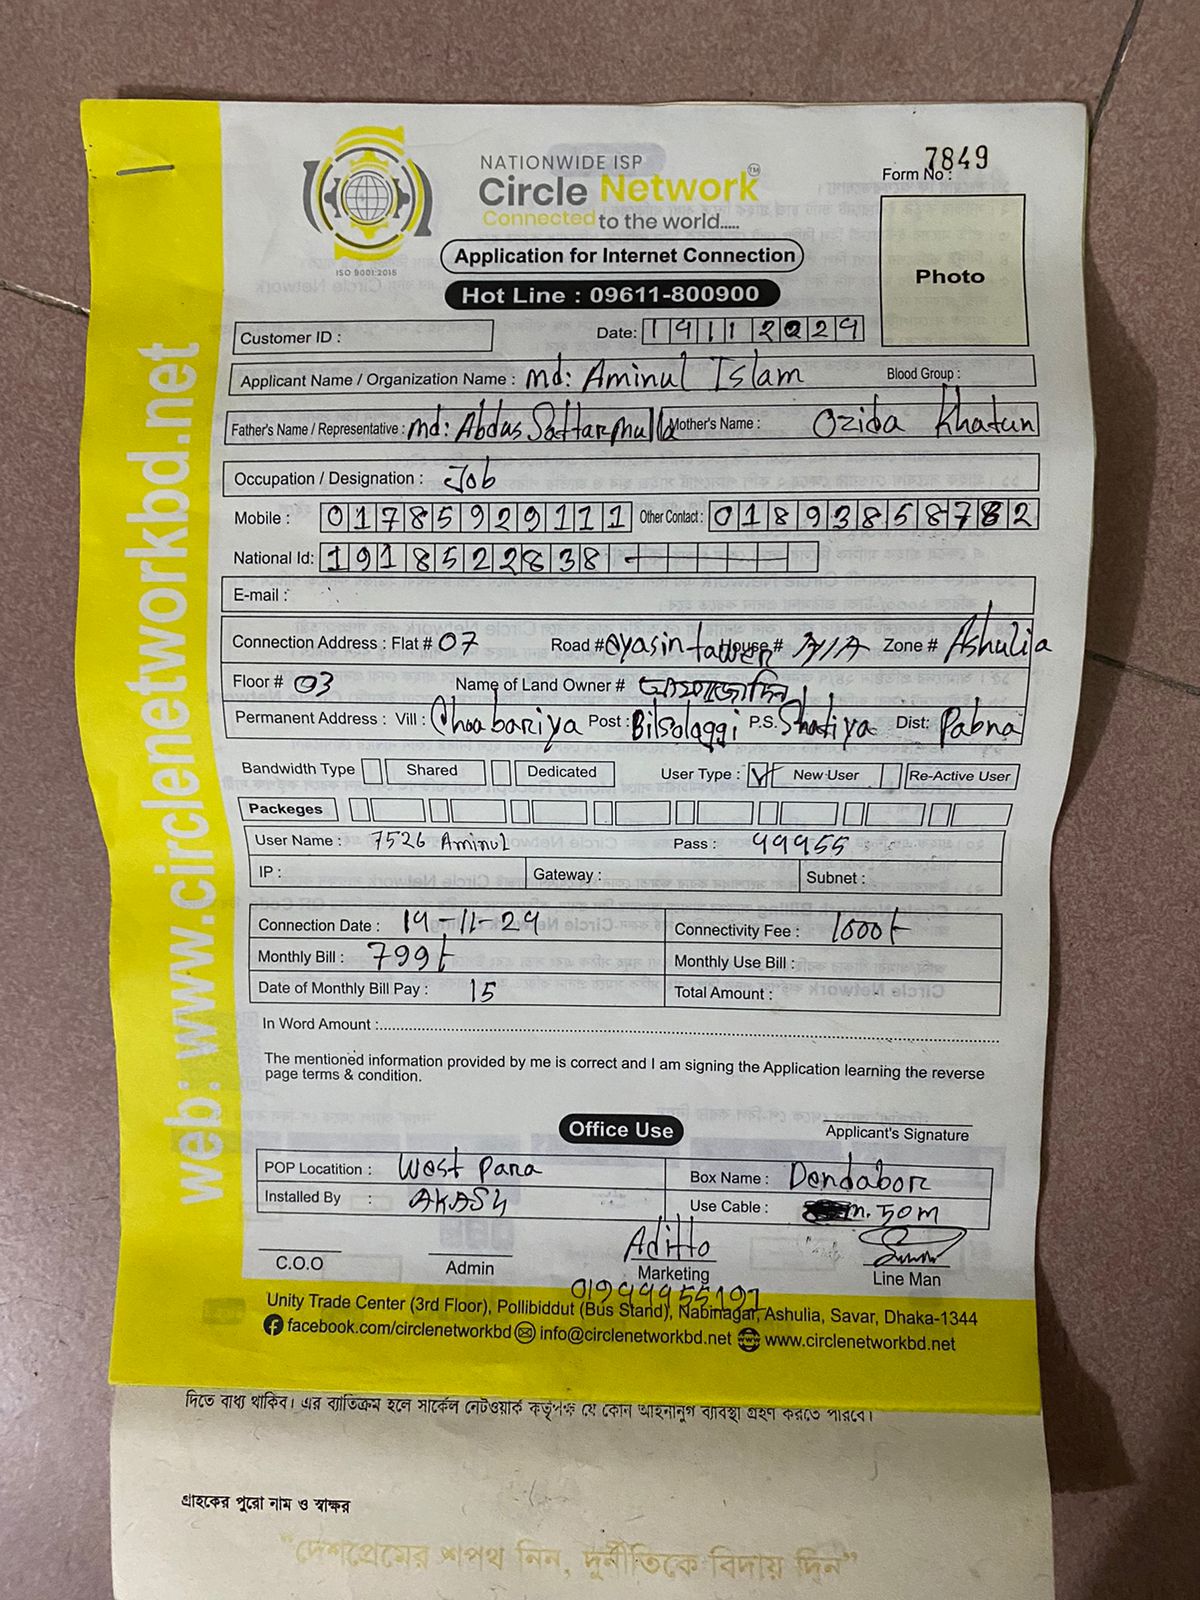 web: www.circlenetworkbd.net
NATIONWIDE ISP
Circle Network™
Connected to the world.....
ISO 9001:2015
Form No : 7849
Photo
Application for Internet Connection
Hot Line : 09611-800900
Customer ID :
Date: 19112024
Applicant Name / Organization Name : md: Aminul Islam Blood Group :
Father's Name / Representative : md: Abdus Sattar Mother's Name : Ozida Khatun
Occupation / Designation : Job
Mobile : 01785929111 Other Contact : 018938587
National Id: 1918522838
E-mail :
Connection Address : Flat # 07 Road # ayasin tawer House # N/A Zone # Ashulia
Floor # 03 Name of Land Owner #
Permanent Address : Vill : Post : P.S. Dist: Pabna
Bandwidth Type Shared Dedicated User Type : New User Re-Active User
Packeges
User Name : 7526 Aminul Pass : 99955
IP : Gateway : Subnet :
Connection Date : 19-11-24 Connectivity Fee : 1000/-
Monthly Bill : 799/- Monthly Use Bill :
Date of Monthly Bill Pay : 15 Total Amount :
In Word Amount :
The mentioned information provided by me is correct and I am signing the Application learning the reverse
page terms & condition.
Office Use
Applicant's Signature
POP Locatition : West Para Box Name : Dendabor
Installed By : AKASH Use Cable : 50m
Aditto
C.O.O Admin Marketing Line Man
Unity Trade Center (3rd Floor), Pollibiddut (Bus Stand), Nabinagar, Ashulia, Savar, Dhaka-1344
facebook.com/circlenetworkbd info@circlenetworkbd.net www.circlenetworkbd.net
দিতে বাধ্য থাকিব। এর ব্যতিক্রম হলে সার্কেল নেটওয়ার্ক কর্তৃপক্ষ যে কোন আইনানুগ ব্যবস্থা গ্রহণ করতে পারবে।
গ্রাহকের পুরো নাম ও স্বাক্ষর
“দেশপ্রেমের শপথ নিন, দুর্নীতিকে বিদায় দিন”